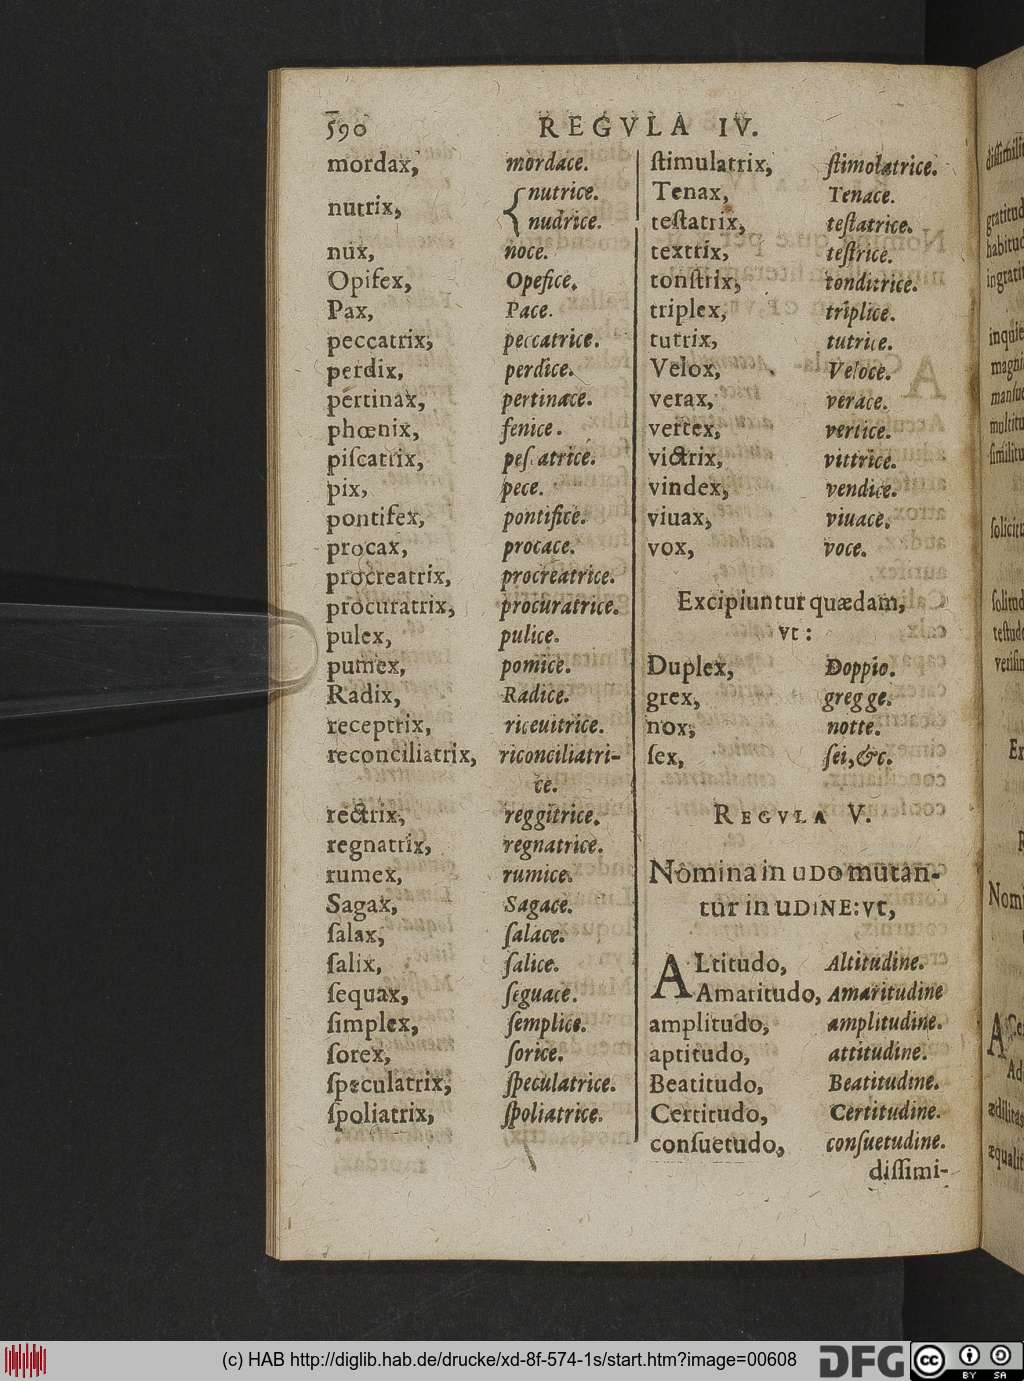 590 REGVLA IV.
mordax, mordace.
nutrix, { nutrice.
nudrice.
nux, noce.
Opifex, Opefice.
Pax, Pace.
peccatrix, peccatrice.
perdix, perdice.
pertinax, pertinace.
phœnix, fenice.
piſcatrix, peſcatrice.
pix, pece.
pontifex, pontifice.
procax, procace.
procreatrix, procreatrice.
procuratrix, procuratrice.
pulex, pulice.
pumex, pomice.
Radix, Radice.
receptrix, riceuitrice.
reconciliatrix, riconciliatri-
ce.
rectrix, reggitrice.
regnatrix, regnatrice.
rumex, rumice.
Sagax, Sagace.
ſalax, ſalace.
ſalix, ſalice.
ſequax, ſeguace.
ſimplex, ſemplice.
ſorex, ſorice.
ſpeculatrix, ſpeculatrice.
ſpoliatrix, ſpoliatrice.
ſtimulatrix, ſtimolatrice.
Tenax, Tenace.
teſtatrix, teſtatrice.
textrix, teſtrice.
tonſtrix, tonditrice.
triplex, triplice.
tutrix, tutrice.
Velox, Veloce.
verax, verace.
vertex, vertice.
victrix, vittrice.
vindex, vendice.
viuax, viuace.
vox, voce.
Excipiuntur quædam,
vt:
Duplex, Doppio.
grex, gregge.
nox, notte.
ſex, ſei, &c.
REGVLA V.
Nomina in UDO mutan-
tur in UDINE: vt,
ALtitudo, Altitudine.
Amaritudo, Amaritudine
amplitudo, amplitudine.
aptitudo, attitudine.
Beatitudo, Beatitudine.
Certitudo, Certitudine.
conſuetudo, conſuetudine.
diſſimi-
(c) HAB http://diglib.hab.de/drucke/xd-8f-574-1s/start.htm?image=00608
DFG
cc BY SA